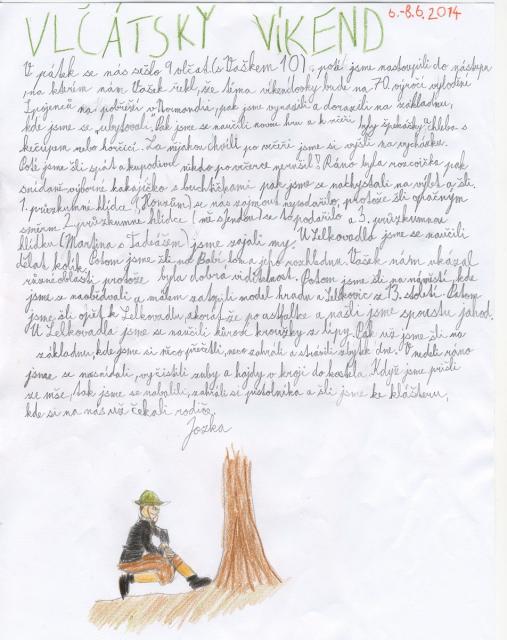 VLČÁTSKÝ VÍKEND 6.-8.6.2014
V pátek se nás sešlo 9 vlčat (s Vaškem 10), poté jsme nastoupili do nástupu,
na kterém nám Vašek řekl, že téma víkendovky bude na 70. výročí vylodění
Spojenců na pobřeží v Normandii, pak jsme vyrazili a dorazili na základnu,
kde jsme se ubytovali. Pak jsme se naučili novou hru a k večeři byly špekáčky a chleba s
kečupem nebo hořčicí. Za nějakou chvíli po večeři jsme si vyšli na vycházku.
Poté jsme šli spát a kupodivu nikdo po večerce nerušil! Ráno byla rozcvička pak
snídaně-výborné kakajíčko s buchtičkami pak jsme se nachystali na výlet a šli.
1. průzkumné hlídce se nás zajmout nepodařilo, protože šli opačným
směrem 2. průzkumné hlídce (mě s Jendou) se to podařilo a 3. průzkumnou
hlídku (Martina s Tadeášem) jsme zajali my. U Lelkovadla jsme se naučili
dělat kolík. Potom jsme šli na Babí lom a jeho rozhlednu. Vašek nám ukázal
různé oblasti protože byla dobrá viditelnost. Potom jsme šli na náměstí, kde
jsme se naobědvali a málem zahodili model hradu v Lelkovic ze 13. století. Potom
jsme šli opět k Lelkovadlu, akorát že po asfaltce a našli jsme spoustu jahod.
U Lelkovadla jsme se naučili kůrové kroužky z lípy. Pak už jsme šli na
základnu, kde jsme si něco přečetli, něco zahráli a strávili zbytek dne. V neděli ráno
jsme se nasnídali, vyčistili zuby a hajdy v kroji do kostela. Když jsme přišli
ze mše, tak jsme se nabalili, zahráli si pistolníka a šli jsme ke klášteru,
kde si na nás už čekali rodiče.
Jozka